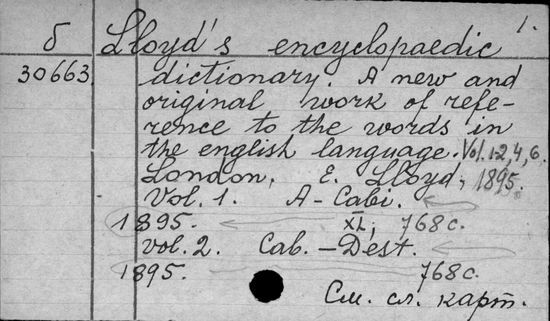 1.
б Lloyd's encyclopaedic
30663 dictionary. A new and
original work of refe-
rence to the words in
the english language. Vol. 1-2, 4, 6.
London, E. Lloyd, 1895.
Vol. 1. A - Cabi.
1895. XL; 768 с.
vol. 2. Cab. - Dest.
1895. 768 с.
См. сл. карт.